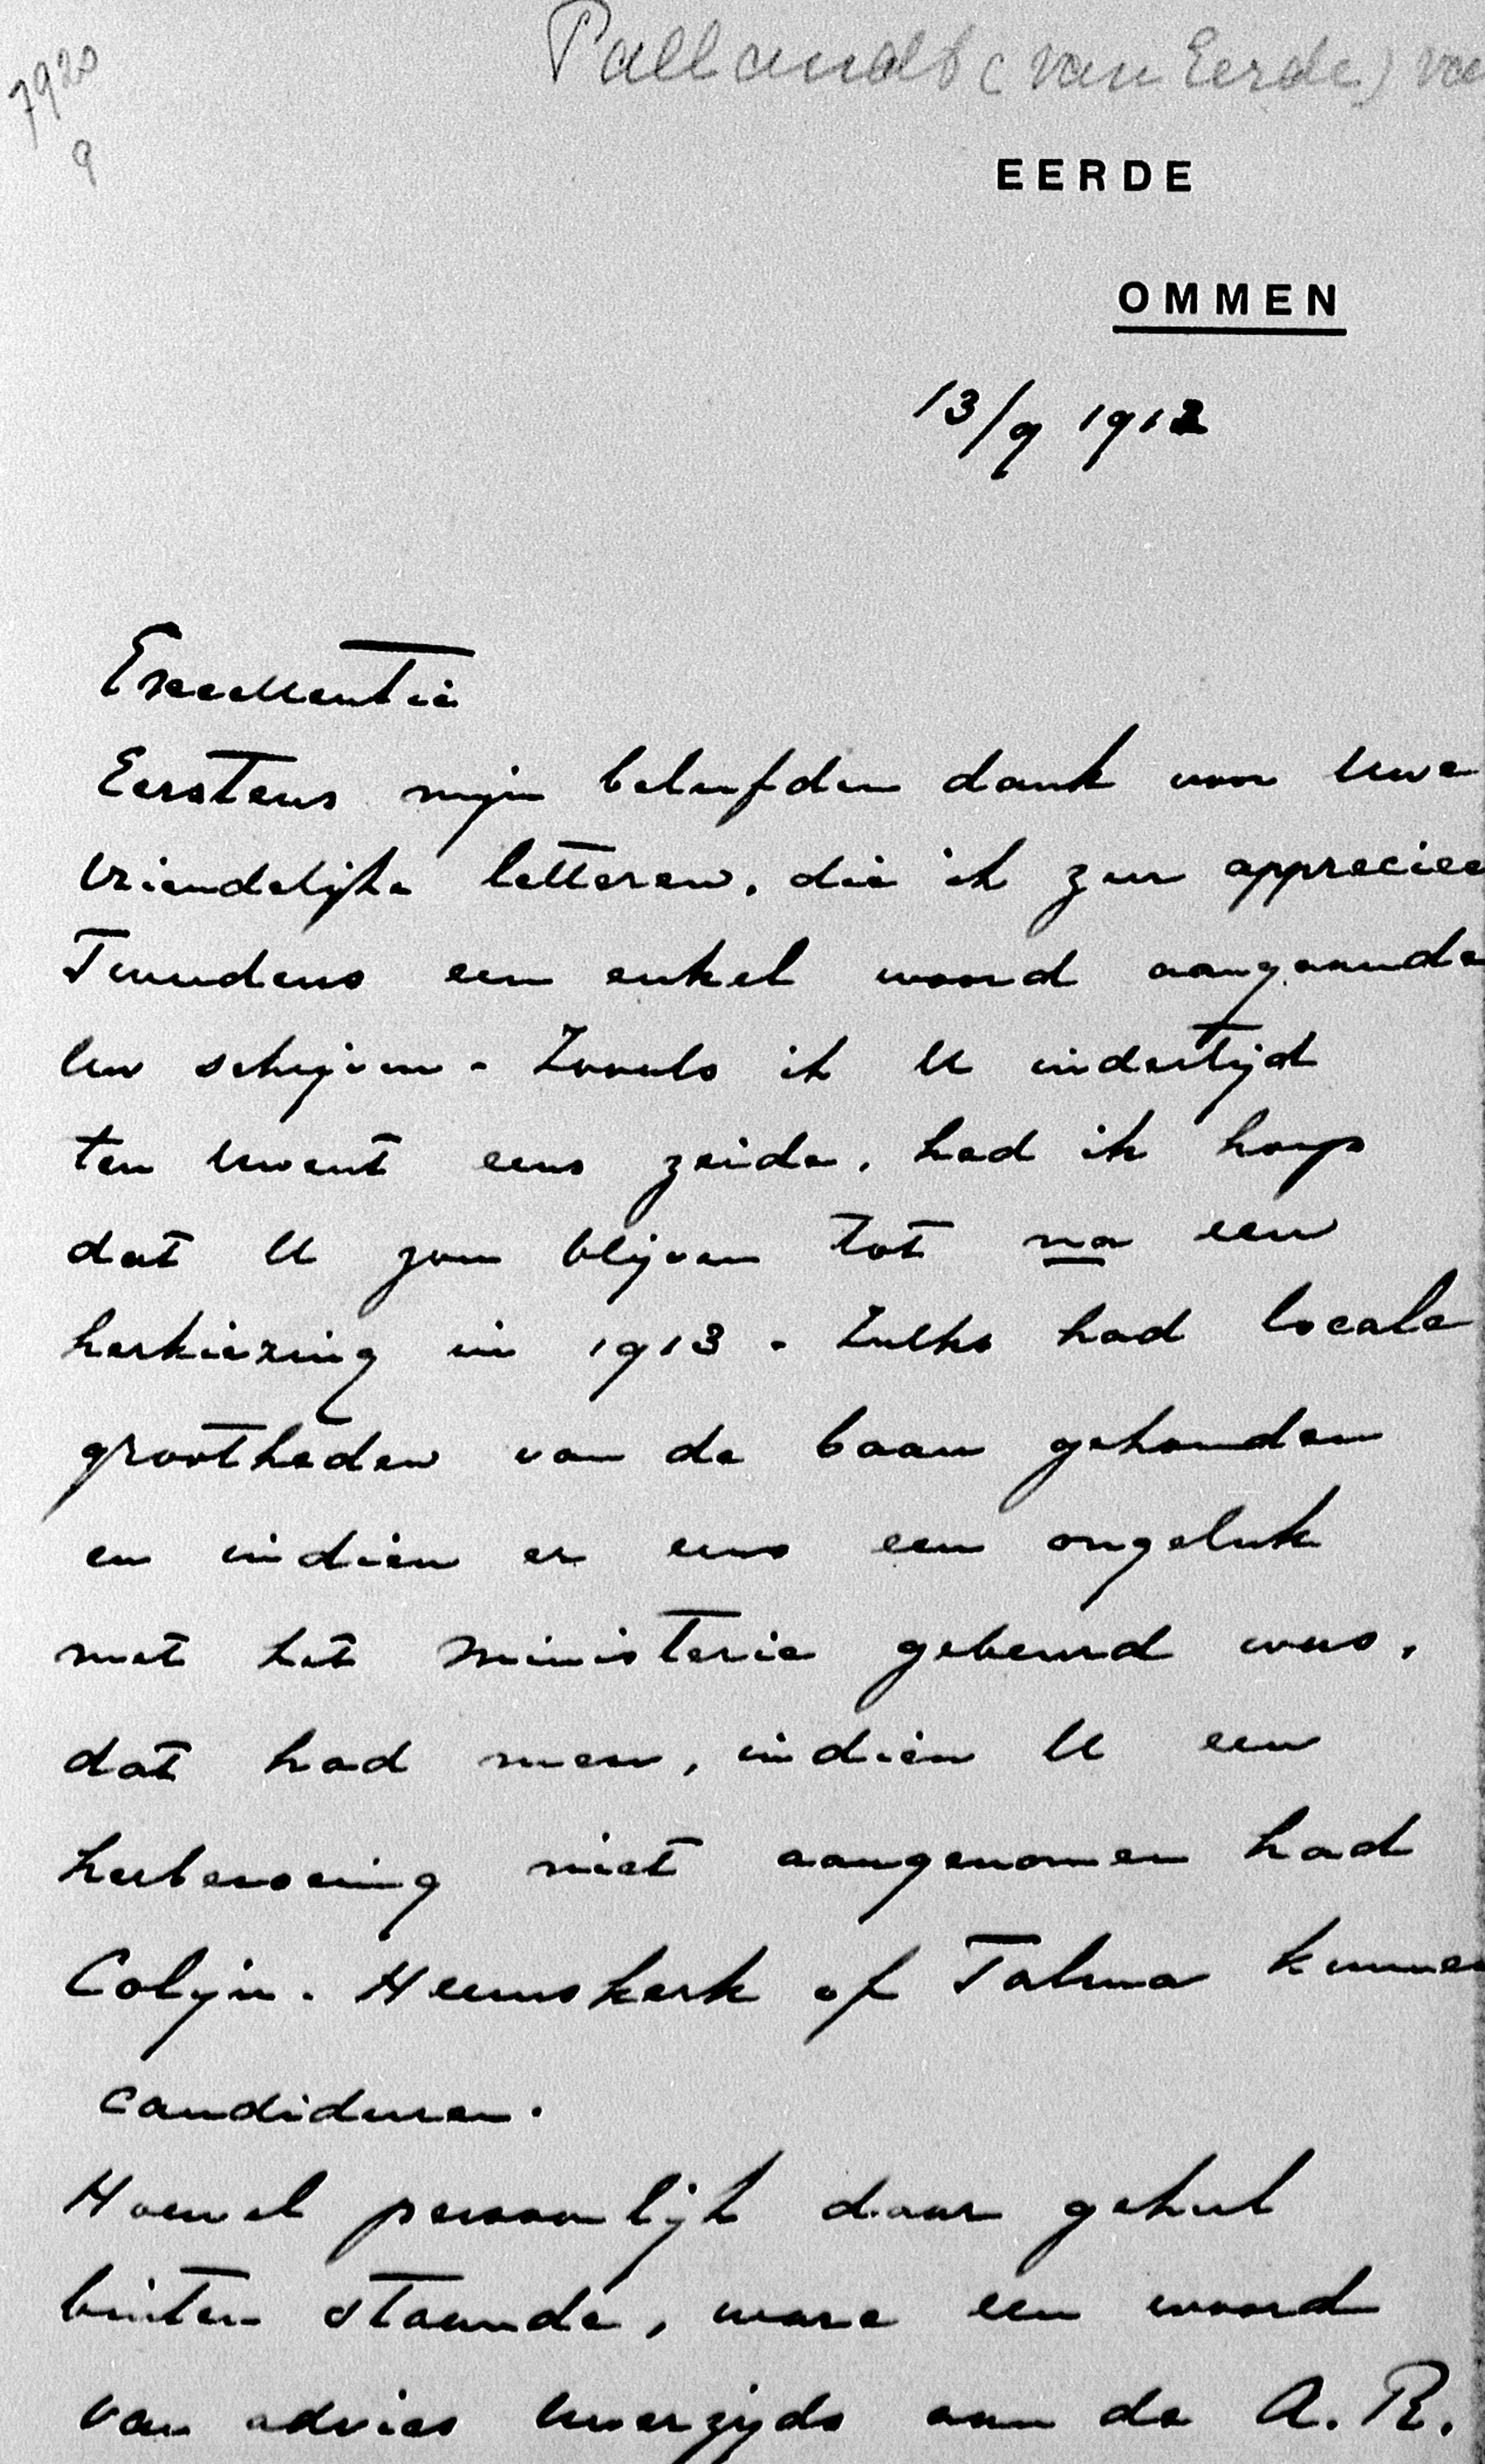 7920
9
Pallandt (van Eerde) va
EERDE
OMMEN
13/9 1912
Excellentie
Eerstens mijn beleefden dank voor Uwe
vriendelijke letteren, die ik zeer apprecieer
Tweedens een enkel woord aangaande
Uw schrijven - Zooals ik U indertijd
ten Uwent eens zeide, had ik hoop
dat U zou blijven tot na een
herkiezing in 1913 - Zulks had locale
grootheden van de baan gehouden
en indien er eens een ongeluk
met het ministerie gebeurd was,
dat had men, indien U een
herbenoeming niet aangenomen had
Colijn, Heemskerk of Talma kunnen
candideeren.
Hoewel persoonlijk daar geheel
buiten staande, ware een woord
van advies Uwerzijds aan de A. R.